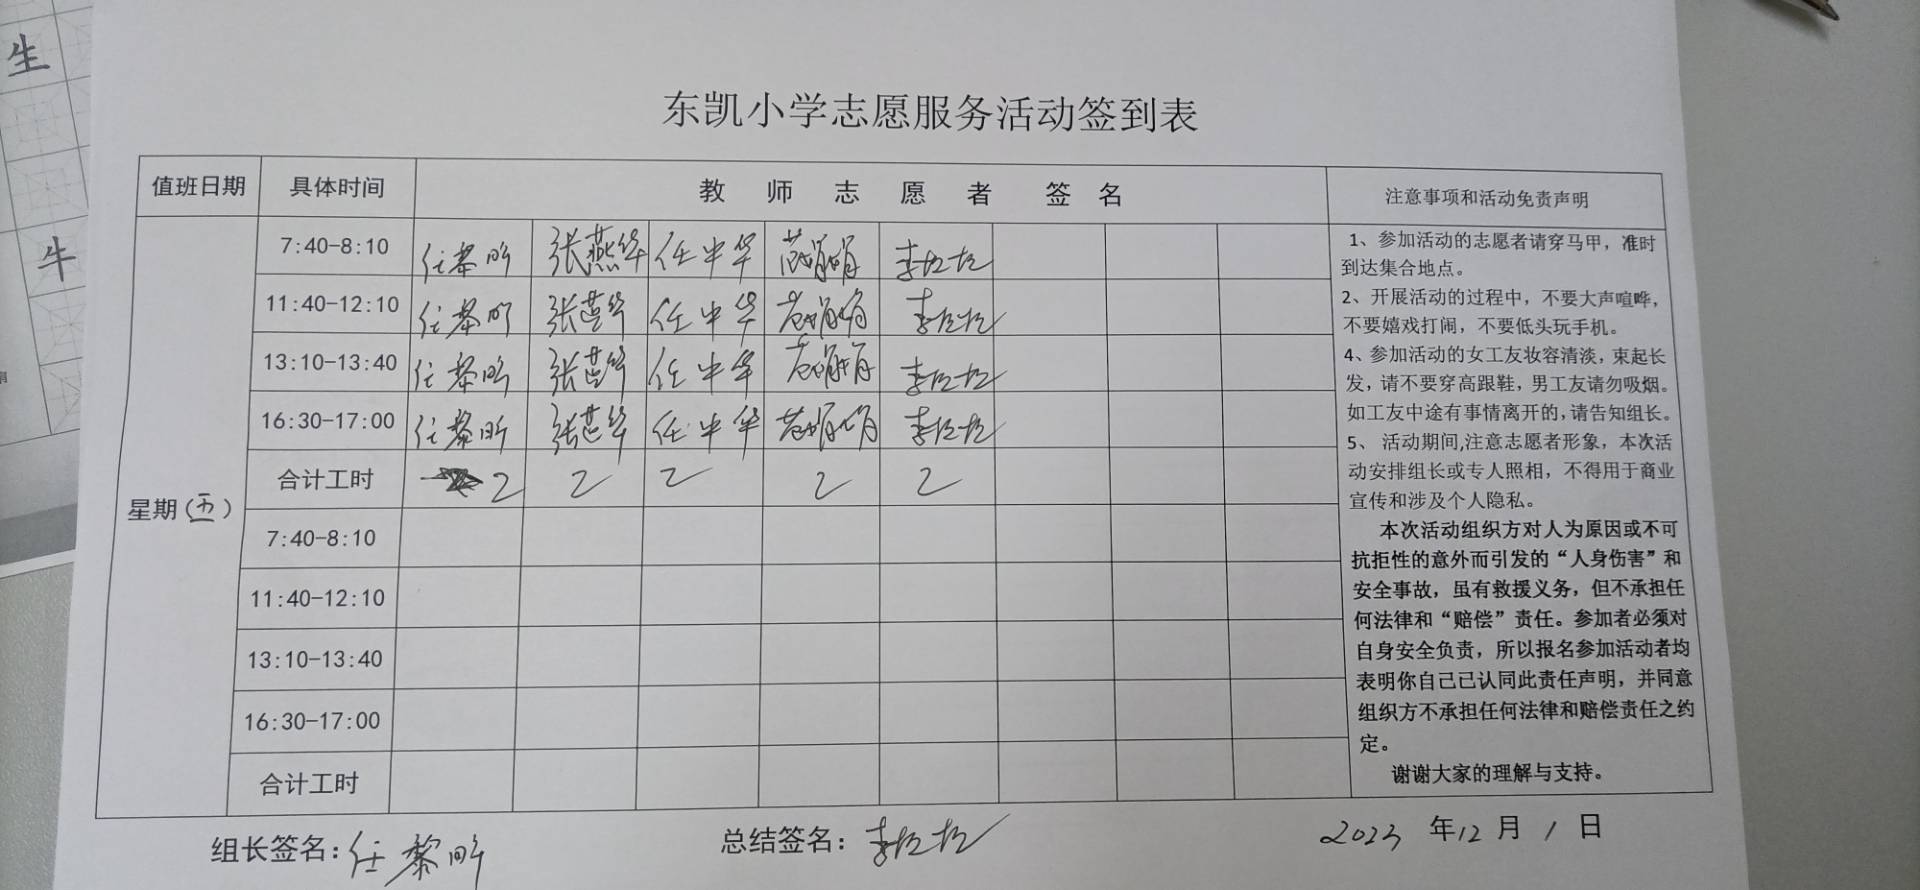 生
牛
东凯小学志愿服务活动签到表
值班日期 具体时间 教师志愿者 签名 注意事项和活动免责声明
7:40-8:10 任黎昕 张燕华 任中华 李垃垃
11:40-12:10 任黎昕 张燕华 任中华 李垃垃
13:10-13:40 任黎昕 张燕华 任中华 李垃垃
16:30-17:00 任黎昕 张燕华 任中华 李垃垃
合计工时 2 2 2 2 2
星期(五)
7:40-8:10
11:40-12:10
13:10-13:40
16:30-17:00
合计工时
1、参加活动的志愿者请穿马甲，准时
到达集合地点。
2、开展活动的过程中，不要大声喧哗，
不要嬉戏打闹，不要低头玩手机。
4、参加活动的女工友妆容清淡，束起长
发，请不要穿高跟鞋，男工友请勿吸烟。
如工友中途有事情离开的，请告知组长。
5、 活动期间,注意志愿者形象，本次活
动安排组长或专人照相，不得用于商业
宣传和涉及个人隐私。
本次活动组织方对人为原因或不可
抗拒性的意外而引发的“人身伤害”和
安全事故，虽有救援义务，但不承担任
何法律和“赔偿”责任。参加者必须对
自身安全负责，所以报名参加活动者均
表明你自己已认同此责任声明，并同意
组织方不承担任何法律和赔偿责任之约
定。
谢谢大家的理解与支持。
组长签名：任黎昕 总结签名：李垃垃 2023 年 12 月 1 日